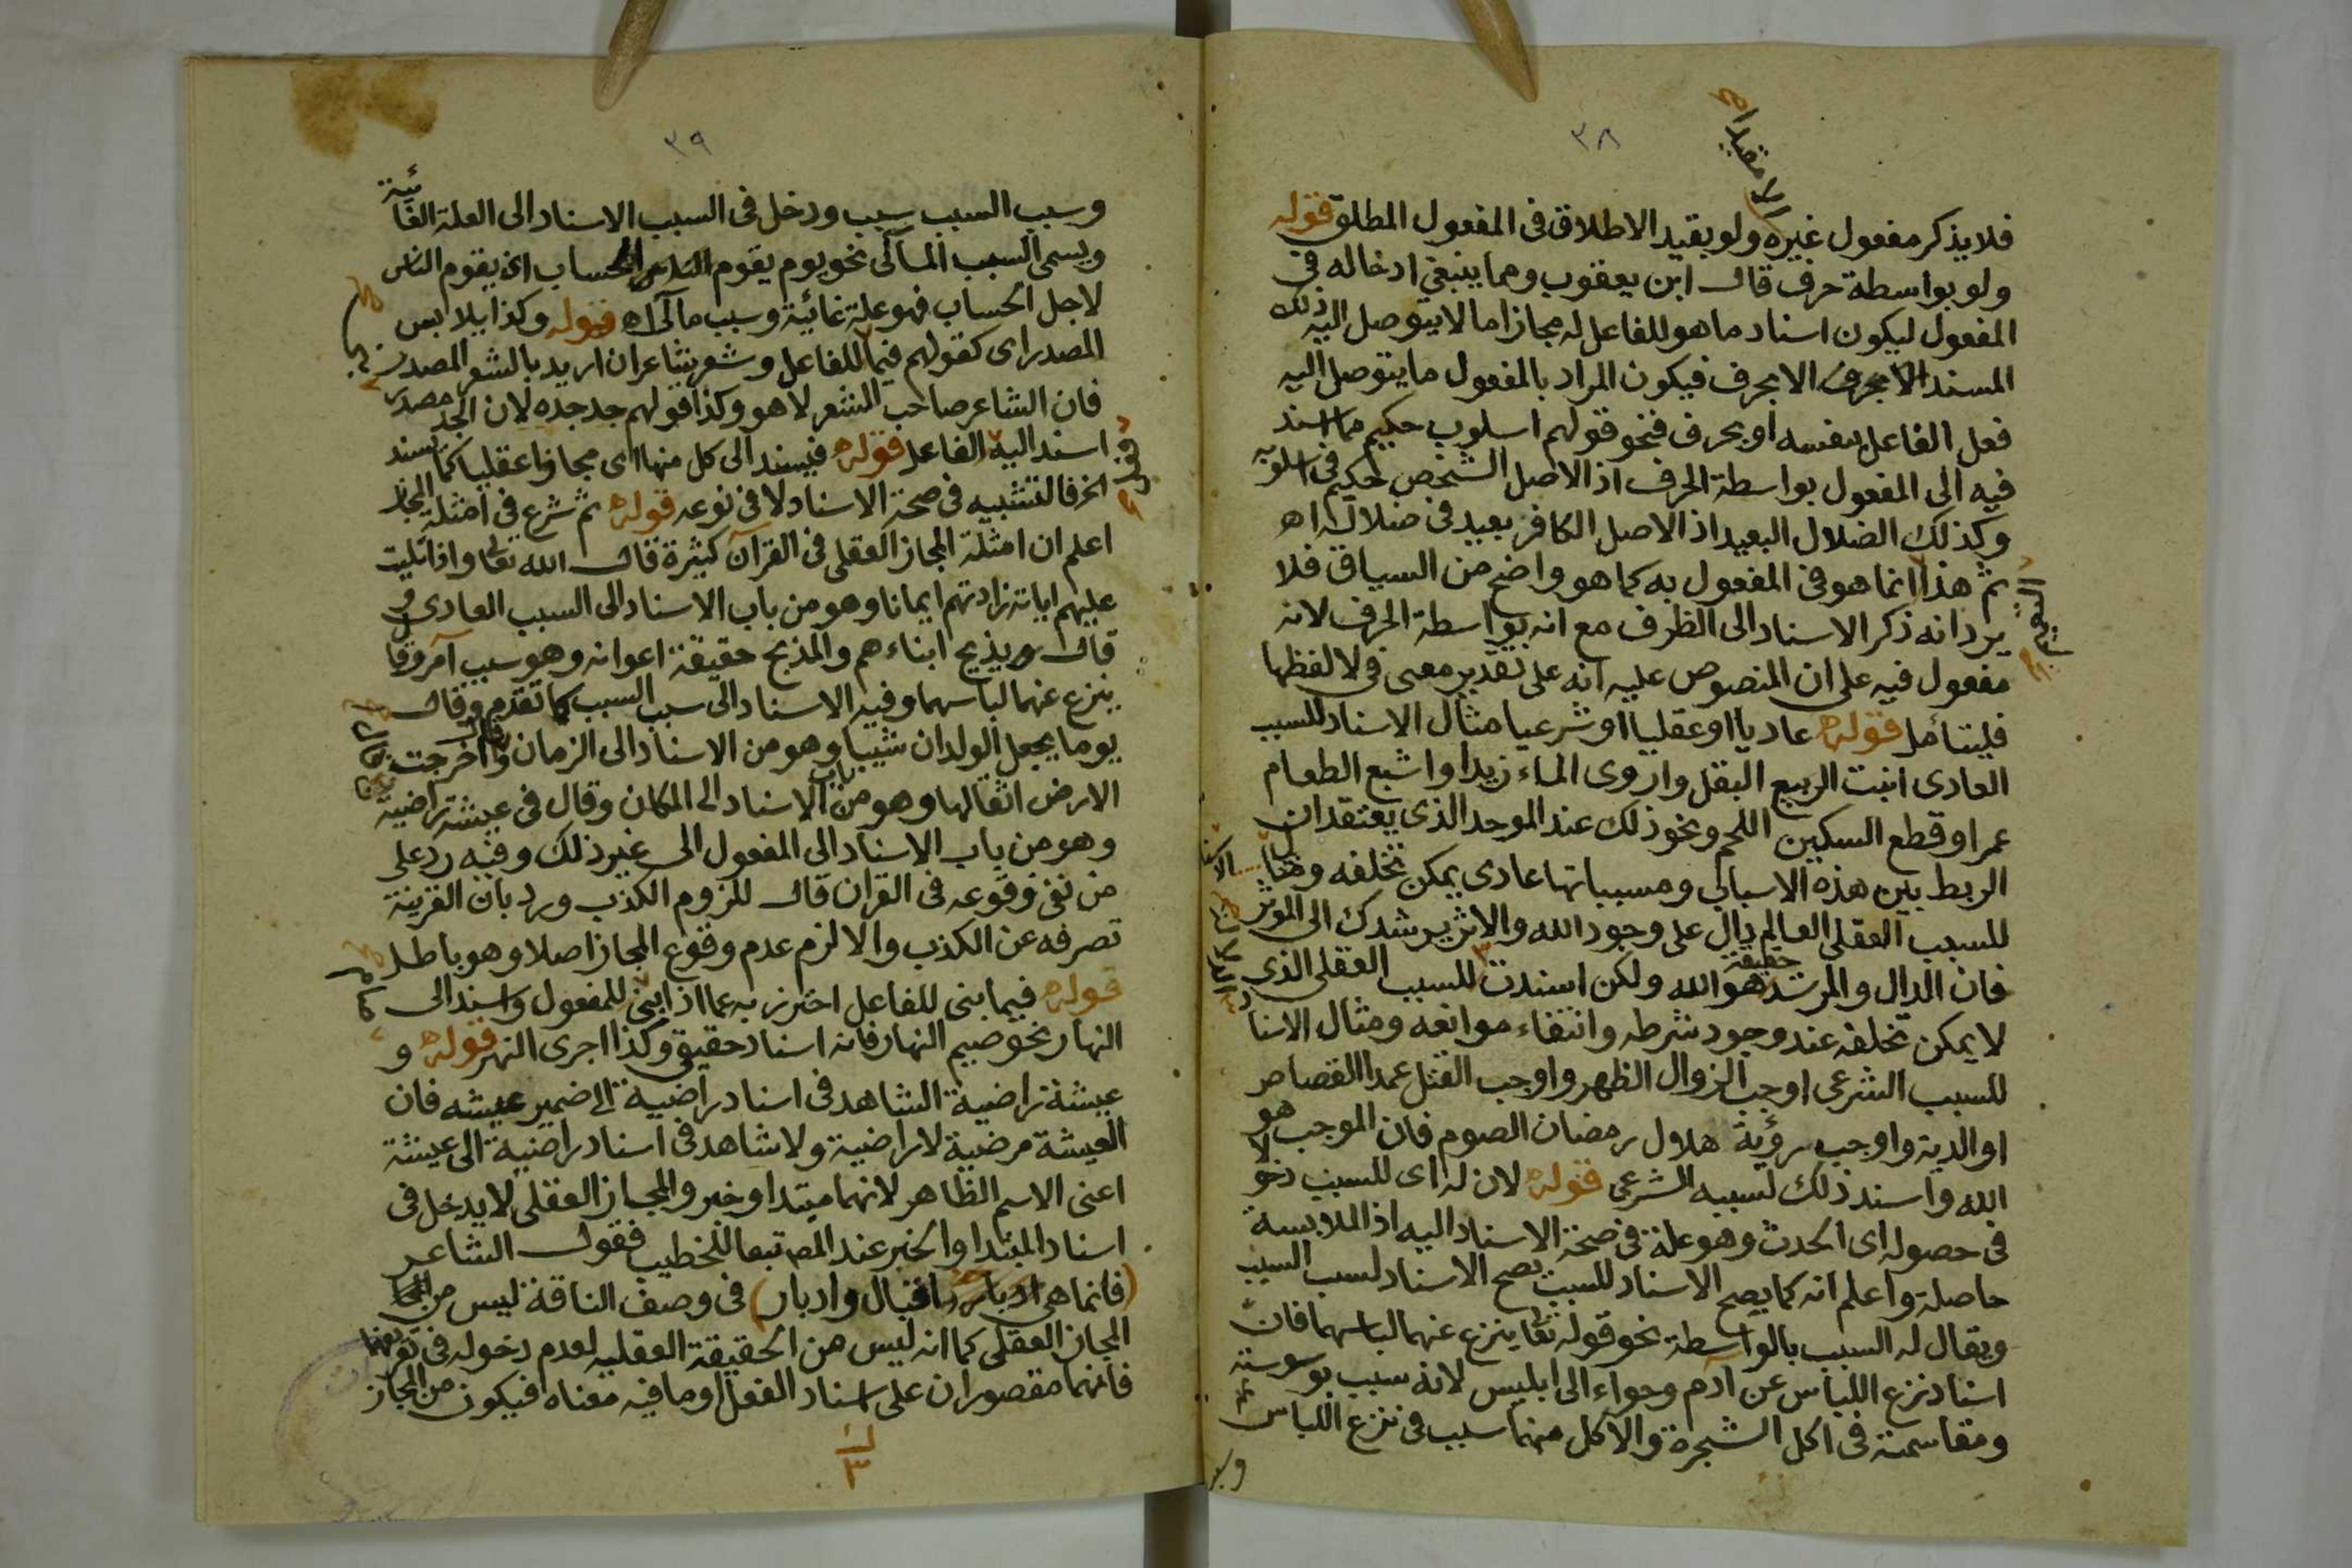 ٣٨
الا مقيدا اه
فلا يذكر مفعول غيره ولو بقيد الاطلاق فى المفعول المطلق قوله
ولو بواسطة حرف قال ابن يعقوب ومما ينبغى ادخاله فى
المفعول ليكون اسناد ما هو للفاعل له مجازا ما لا يتوصل اليه ذلك
المسند الا بحرف فيكون المراد بالمفعول ما يتوصل اليه
فعل الفاعل بنفسه او بحرف فنحو قولهم اسلوب حكيم مما اسند
فيه الى المفعول بواسطة الحرف اذ الاصل الشخص حكيم فى اسلوبه
وكذلك الضلال البعيد اذ الاصل الكافر بعيد فى ضلاله اه
ثم هذا انما هو فى المفعول به كما هو واضح من السياق فلا
يرد انه ذكر الاسناد الى الظرف مع انه بواسطة الحرف لانه
مفعول فيه على ان المنصوص عليه انه على تقدير معنى فى لا لفظها
فليتأمل قوله عاديا او عقليا او شرعيا مثال الاسناد للسبب
العادى انبت الربيع البقل واروى الماء زيدا واشبع الطعام
عمرا وقطع السكين اللحم ونحو ذلك عند الموحد الذى يعتقد ان
الربط بين هذه الاسباب ومسبباتها عادى يمكن تخلفه ومثال
للسبب العقلى العالم دال على وجود الله والاثر يرشدك الى الموثر
فان الدال والمرشد حقيقة هو الله ولكن اسندت للسبب العقلى الذى
لا يمكن تخلفه عند وجود شرطه وانتفاء موانعه ومثال الاسناد
للسبب الشرعى اوجب الزوال الظهر واوجب القتل عمدا القصاص
او الدية واوجب رؤية هلال رمضان الصوم فان الموجب هو
الله واسند ذلك لسببه الشرعى قوله لان له اى للسبب دخولا
فى حصوله اى الحدث وهو علة فى صحة الاسناد اليه اذ الملابسة
حاصلة واعلم انه كما يصح الاسناد للسبب يصح الاسناد لسبب السبب
ويقال له السبب بالواسطة نحو قوله تعا ينزع عنهما لباسهما فان
اسناد نزع اللباس عن آدم وحواء الى ابليس لانه سبب بوسوسته
ومقاسمته فى اكل الشجرة والاكل منها سبب فى نزع اللباس
وسبب
٣٩
وسبب السبب سبب ودخل فى السبب الاسناد الى العلة الغائية
ويسمى السبب المآلى نحو يوم يقوم الحساب اى يقوم الناس
لاجل الحساب فهو علة غائية وسبب مآلى اه قوله وكذا يلابس
المصدر اى كقولهم فيما للفاعل وشعر شاعر ان اريد بالشعر المصدر
فان الشاعر صاحب الشعر لا هو وكذا قولهم جد جده لان الجد مصدر
اسند اليه الفاعل قوله فيسند الى كل منها اى مجازا عقليا كما يسند
اخر فالتشبيه فى صحة الاسناد لا فى نوعه قوله ثم شرع فى امثلة المجاز
اعلم ان امثلة المجاز العقلى فى القرآن كثيرة قال الله تعا واذا تليت
عليهم اياته زادتهم ايمانا وهو من باب الاسناد الى السبب العادى و
قال يذبح ابناءهم والمذبح حقيقة اعوانه وهو سبب آمر وقال
ينزع عنهما لباسهما وفيه الاسناد الى سبب السبب كما تقدم وقال
يوما يجعل الولدان شيبا وهو من الاسناد الى الزمان وقال واخرجت
الارض اثقالها وهو من باب الاسناد الى المكان وقال فى عيشة راضية
وهو من باب الاسناد الى المفعول الى غير ذلك وفيه رد على
من نفى وقوعه فى القران قال للزوم الكذب ورد بان القرينة
تصرفه عن الكذب والا لزم عدم وقوع المجاز اصلا وهو باطل
قوله فيما بنى للفاعل احترز به عما اذا بنى للمفعول واسند الى
النهار نحو صيم النهار فانه اسناد حقيقى وكذا اجرى النهر قوله و
عيشة راضية الشاهد فى اسناد راضية الى ضمير عيشه فان
العيشة مرضية لا راضية ولا شاهد فى اسناد راضية الى عيشة
اعنى الاسم الظاهر لانهما مبتدا وخبر والمجاز العقلى لا يدخل فى
اسناد المبتدا والخبر عند المص تبعا للخطيب فقول الشاعر
(فانما هى اقبال وادبار) فى وصف الناقة ليس من
المجاز العقلى كما انه ليس من الحقيقة العقليه لعدم دخوله فى تعريفهما
فانهما مقصوران على اسناد الفعل او ما فيه معناه فيكون من المجاز
٣